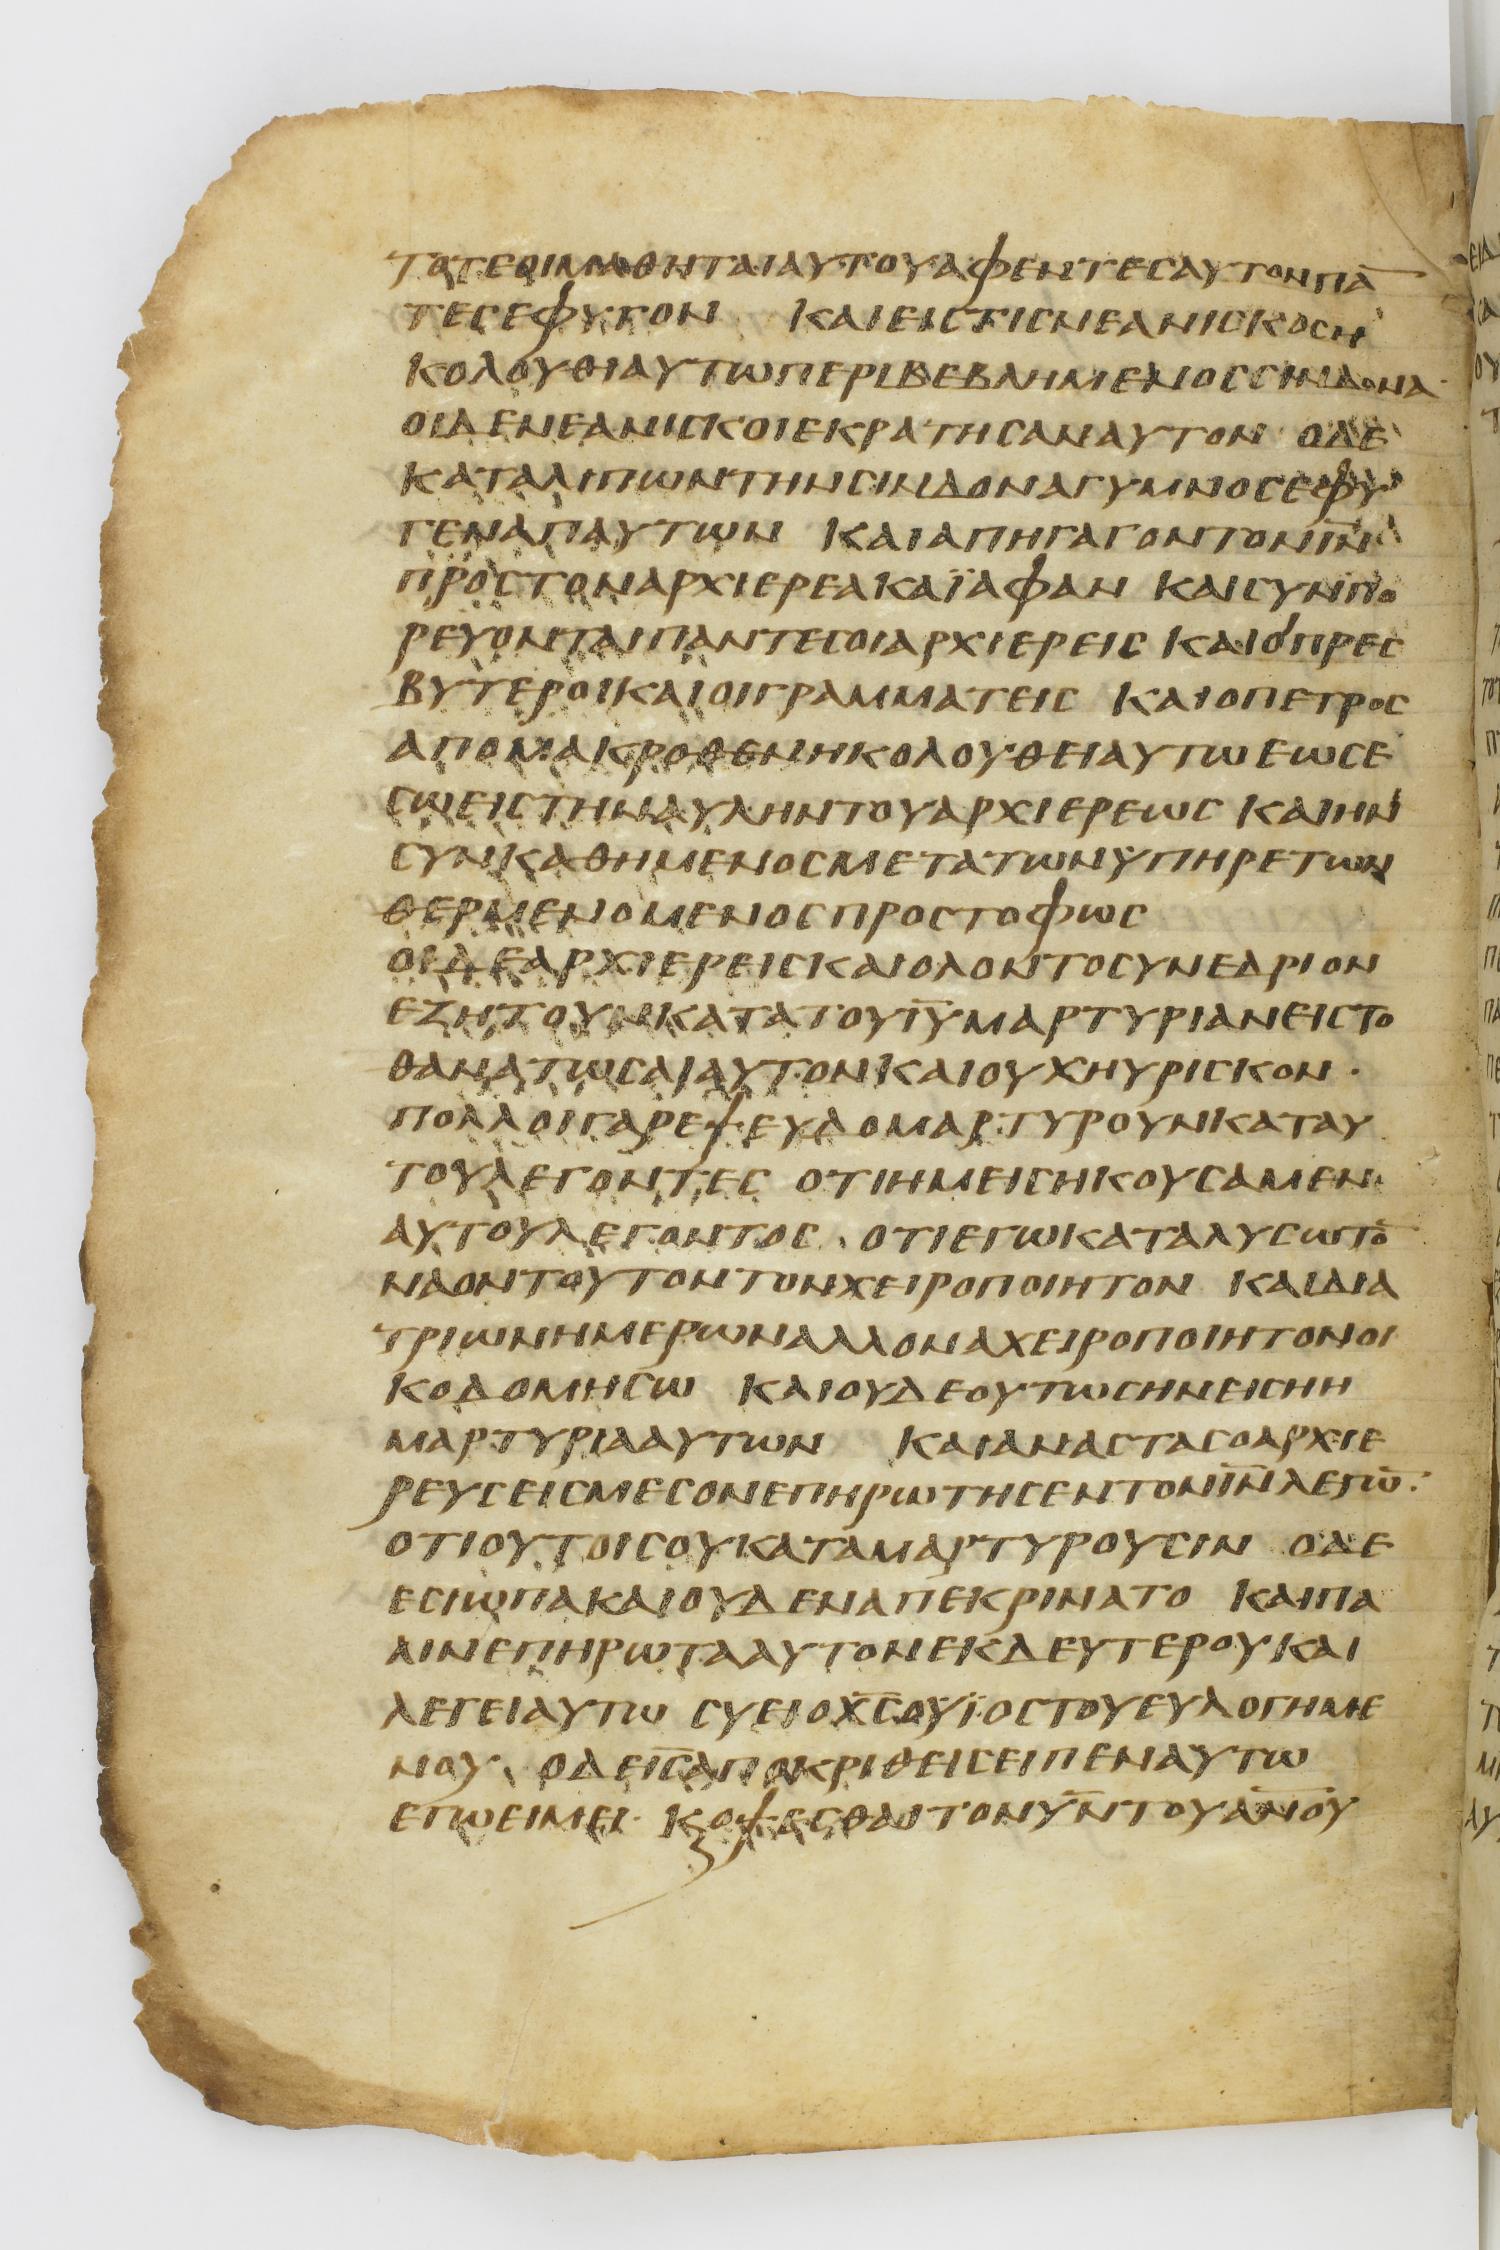 ΤΟΤΕΟΙΜΑΘΗΤΑΙΑΥΤΟΥΑΦΕΝΤΕΣΑΥΤΟΝΠΑ̅
ΤΕΣΕΦΥΓΟΝ ΚΑΙΕΙΣΤΙΣΝΕΑΝΙΣΚΟΣΗ
ΚΟΛΟΥΘΙΑΥΤΩΠΕΡΙΒΕΒΛΗΜΕΝΟΣΣΙΝΔΟΝΑ·
ΟΙΔΕΝΕΑΝΙΣΚΟΙΕΚΡΑΤΗΣΑΝΑΥΤΟΝ ΟΔΕ
ΚΑΤΑΛΙΠΩΝΤΗΝΣΙΝΔΟΝΑΓΥΜΝΟΣΕΦΥ
ΓΕΝΑΠΑΥΤΩΝ ΚΑΙΑΠΗΓΑΓΟΝΤΟΝΙ̅Ν̅
ΠΡΟΣΤΟΝΑΡΧΙΕΡΕΑΚΑΪΑΦΑΝ ΚΑΙΣΥΝΠΟ
ΡΕΥΟΝΤΑΙΠΑΝΤΕΣΟΙΑΡΧΙΕΡΕΙΣ ΚΑΙΟΙΠΡΕΣ
ΒΥΤΕΡΟΙΚΑΙΟΙΓΡΑΜΜΑΤΕΙΣ ΚΑΙΟΠΕΤΡΟΣ
ΑΠΟΜΑΚΡΟΘΕΝΗΚΟΛΟΥΘΕΙΑΥΤΩΕΩΣΕ
ΣΩΕΙΣΤΗΝΑΥΛΗΝΤΟΥΑΡΧΙΕΡΕΩΣ ΚΑΙΗΝ
ΣΥΝΚΑΘΗΜΕΝΟΣΜΕΤΑΤΩΝΥΠΗΡΕΤΩΝ
ΘΕΡΜΕΝΟΜΕΝΟΣΠΡΟΣΤΟΦΩΣ
ΟΙΔΕΑΡΧΙΕΡΕΙΣΚΑΙΟΛΟΝΤΟΣΥΝΕΔΡΙΟΝ
ΕΖΗΤΟΥΝΚΑΤΑΤΟΥΙ̅Υ̅ΜΑΡΤΥΡΙΑΝΕΙΣΤΟ
ΘΑΝΑΤΩΣΑΙΑΥΤΟΝΚΑΙΟΥΧΗΥΡΙΣΚΟΝ·
ΠΟΛΛΟΙΓΑΡΕΨΕΥΔΟΜΑΡΤΥΡΟΥΝΚΑΤΑΥ
ΤΟΥΛΕΓΟΝΤΕΣ ΟΤΙΗΜΕΙΣΗΚΟΥΣΑΜΕΝ
ΑΥΤΟΥΛΕΓΟΝΤΟΣ ΟΤΙΕΓΩΚΑΤΑΛΥΣΩΤΟ̅
ΝΑΟΝΤΟΥΤΟΝΤΟΝΧΕΙΡΟΠΟΙΗΤΟΝ ΚΑΙΔΙΑ
ΤΡΙΩΝΗΜΕΡΩΝΑΛΛΟΝΑΧΕΙΡΟΠΟΙΗΤΟΝΟΙ
ΚΟΔΟΜΗΣΩ ΚΑΙΟΥΔΕΟΥΤΩΣΗΝΕΙΣΗΗ
ΜΑΡΤΥΡΙΑΑΥΤΩΝ ΚΑΙΑΝΑΣΤΑΣΟΑΡΧΙΕ
ΡΕΥΣΕΙΣΜΕΣΟΝΕΠΗΡΩΤΗΣΕΝΤΟΝΙ̅Ν̅ΛΕΓΩ̅·
ΟΤΙΟΥΤΟΙΣΟΥΚΑΤΑΜΑΡΤΥΡΟΥΣΙΝ ΟΔΕ
ΕΣΙΩΠΑΚΑΙΟΥΔΕΝΑΠΕΚΡΙΝΑΤΟ ΚΑΙΠΑ
ΛΙΝΕΠΗΡΩΤΑΑΥΤΟΝΕΚΔΕΥΤΕΡΟΥΚΑΙ
ΛΕΓΕΙΑΥΤΩ ΣΥΕΙΟΧ̅Σ̅ΟΥΪΟΣΤΟΥΕΥΛΟΓΗΜΕ
ΝΟΥ ΟΔΕΙ̅Σ̅ΑΠΟΚΡΙΘΕΙΣΕΙΠΕΝΑΥΤΩ
ΕΓΩΕΙΜΕΙ· ΚΟΨΕΣΘΑΙΤΟΝΥ̅Ν̅ΤΟΥΑ̅Ν̅Ο̅Υ̅